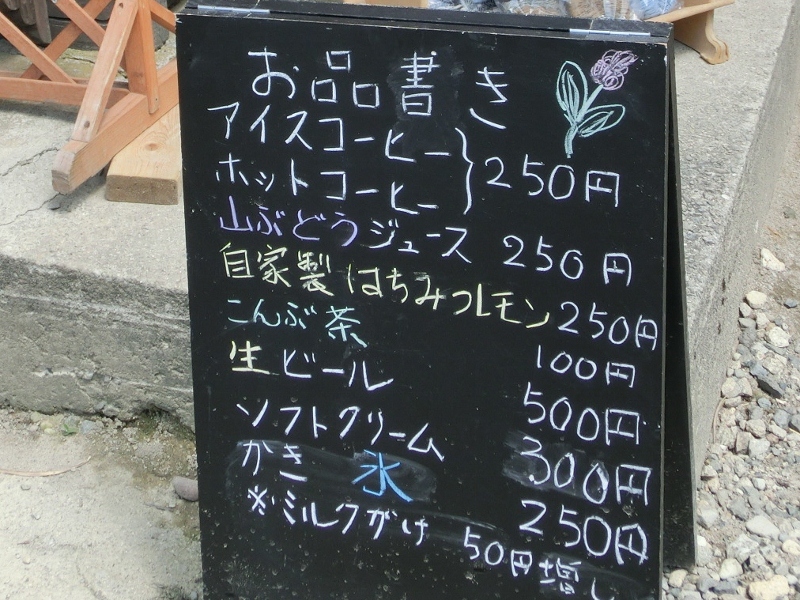 お品書き
アイスコーヒー
ホットコーヒー } 250円
山ぶどうジュース 250円
自家製はちみつレモン 250円
こんぶ茶 100円
生ビール 500円
ソフトクリーム 300円
かき氷 250円
※ミルクがけ 50円増し